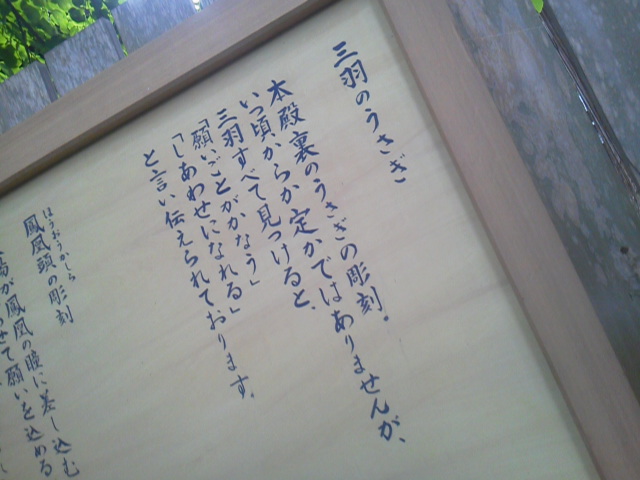 三羽のうさぎ
本殿裏のうさぎの彫刻。
いつ頃からか定かではありませんが、
三羽すべて見つけると、
「願いごとがかなう」
「しあわせになれる」
と言い伝えられております。
ほうおうかしら
鳳凰頭の彫刻
が鳳凰の瞳に差し込む
せて願いを込める